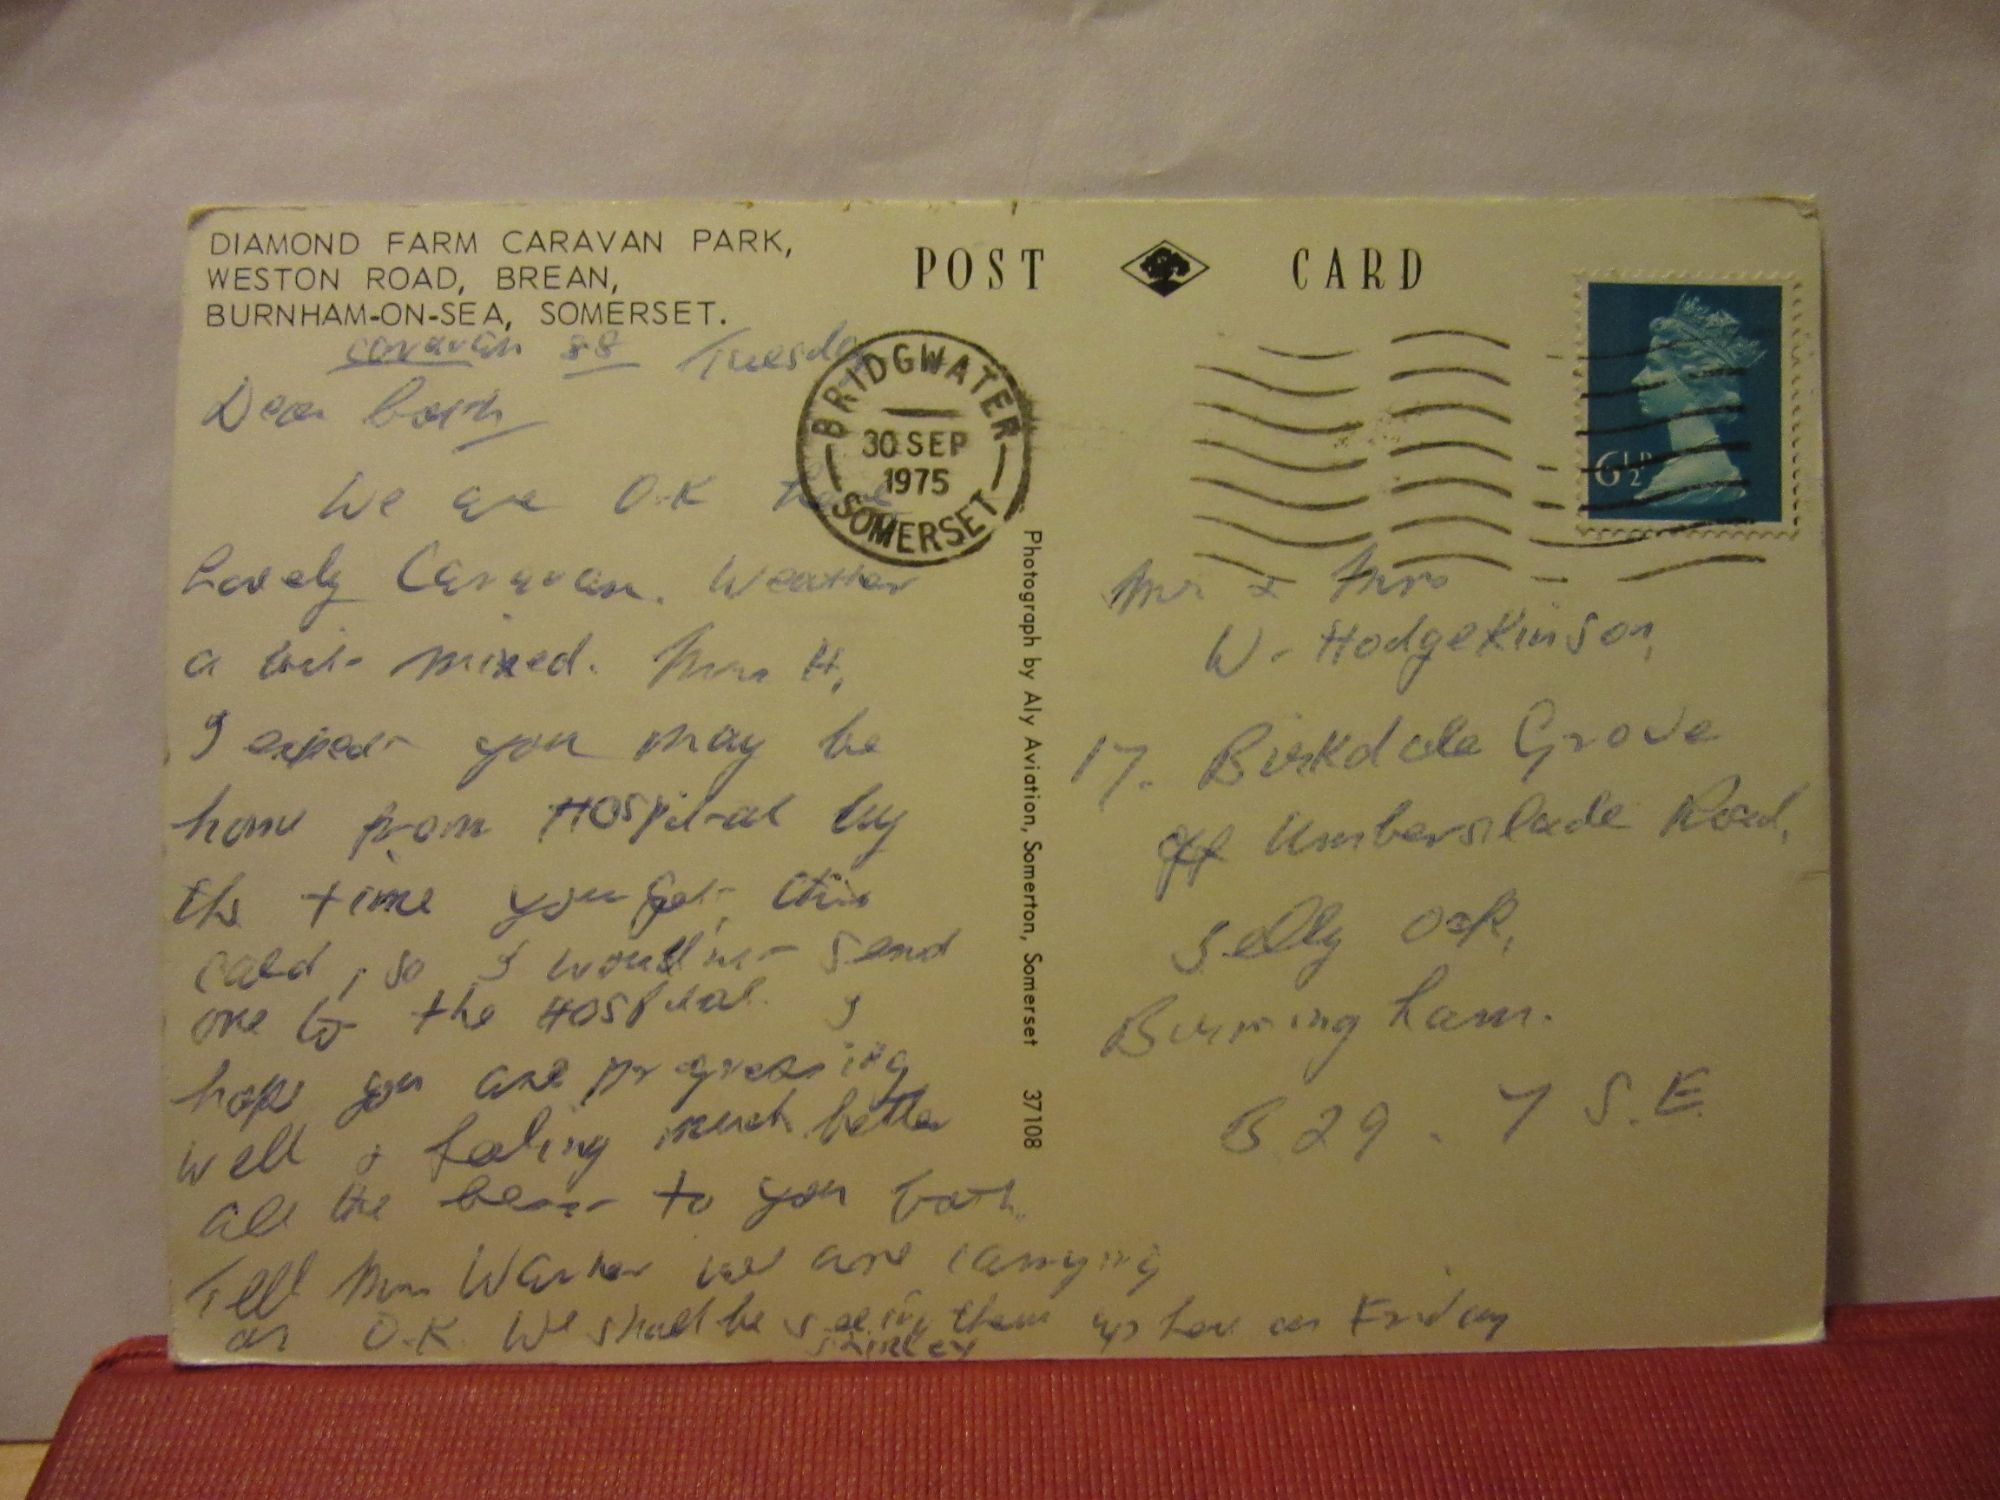 DIAMOND FARM CARAVAN PARK,
WESTON ROAD, BREAN,
BURNHAM-ON-SEA, SOMERSET.
caravan 88 Tuesday
Dear both
We are O.K
Lovely Caravan. Weather
a bit mixed. Mrs H,
I expect you may be
home from Hospital by
the time you get this
card, so I wouldn't send
one to the Hospital. I
hope you are progressing
well & feeling much better
all the best to you both.
Tell Mrs Warner we are carrying
on O.K. We shall be seeing them up here on Friday
SHIRLEY
POST CARD
BRIDGWATER
30 SEP
1975
SOMERSET
6½P
Photograph by Aly Aviation, Somerton, Somerset 37108
Mr & Mrs
W. Hodgekinson,
17. Birkdale Grove
off Umberslade Road,
Selly Oak,
Birmingham.
B 29. 7 S.E.